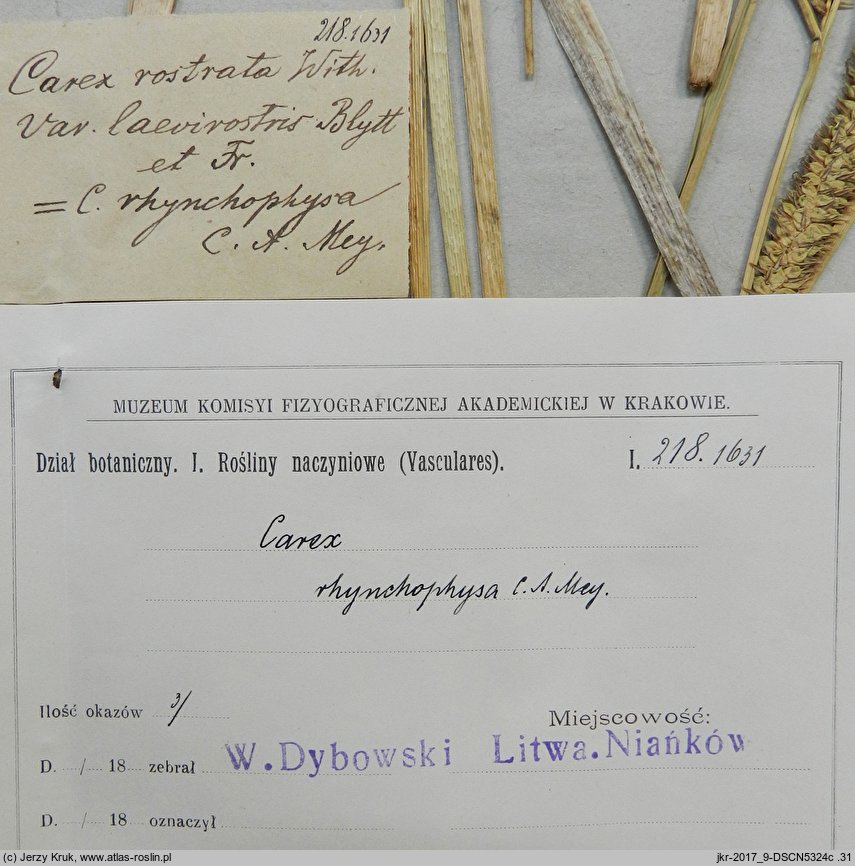 218.1631
Carex rostrata With.
Var. laevirostris Blytt
et Fr.
= C. rhynchophysa
C. A. Mey.
MUZEUM KOMISYI FIZYOGRAFICZNEJ AKADEMICKIEJ W KRAKOWIE.
Dział botaniczny. I. Rośliny naczyniowe (Vasculares). I. 218.1631
Carex
rhynchophysa C. A. Mey.
Ilość okazów 3/
Miejscowość:
D. / 18 zebrał W. Dybowski Litwa. Niańków
D. / 18 oznaczył
(c) Jerzy Kruk, www.atlas-roslin.pl jkr-2017_9-DSCN5324c .31